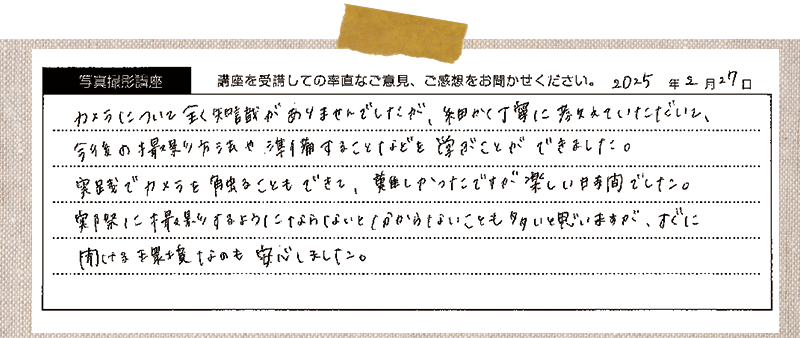 写真撮影講座 講座を受講しての率直なご意見、ご感想をお聞かせください。 2025年2月27日
カメラについて全く知識がありませんでしたが、細かく丁寧に教えていただいて、
今後の撮影方法や準備することなどを学ぶことができました。
実践でカメラを触ることもできて、難しかったですが楽しい時間でした。
実際に撮影するようにならないと分からないことも多いと思いますが、すぐに
聞ける環境なのも安心しました。